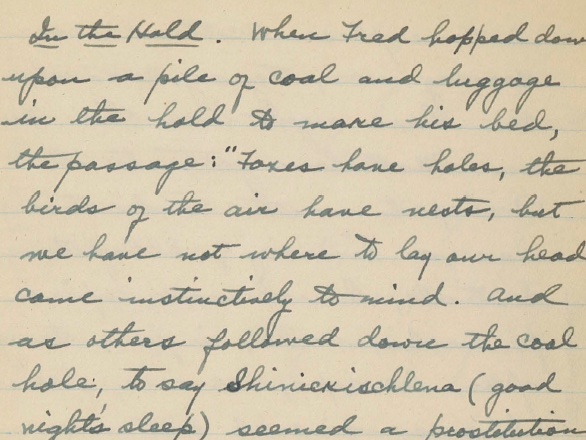 In the Hold. When Fred hopped down
upon a pile of coal and luggage
in the hold to make his bed,
the passage: "Foxes have holes, the
birds of the air have nests, but
we have not where to lay our head
came instinctively to mind. And
as others followed down the coal
hole, to say Shinickischlena (good
night's sleep) seemed a prostitution